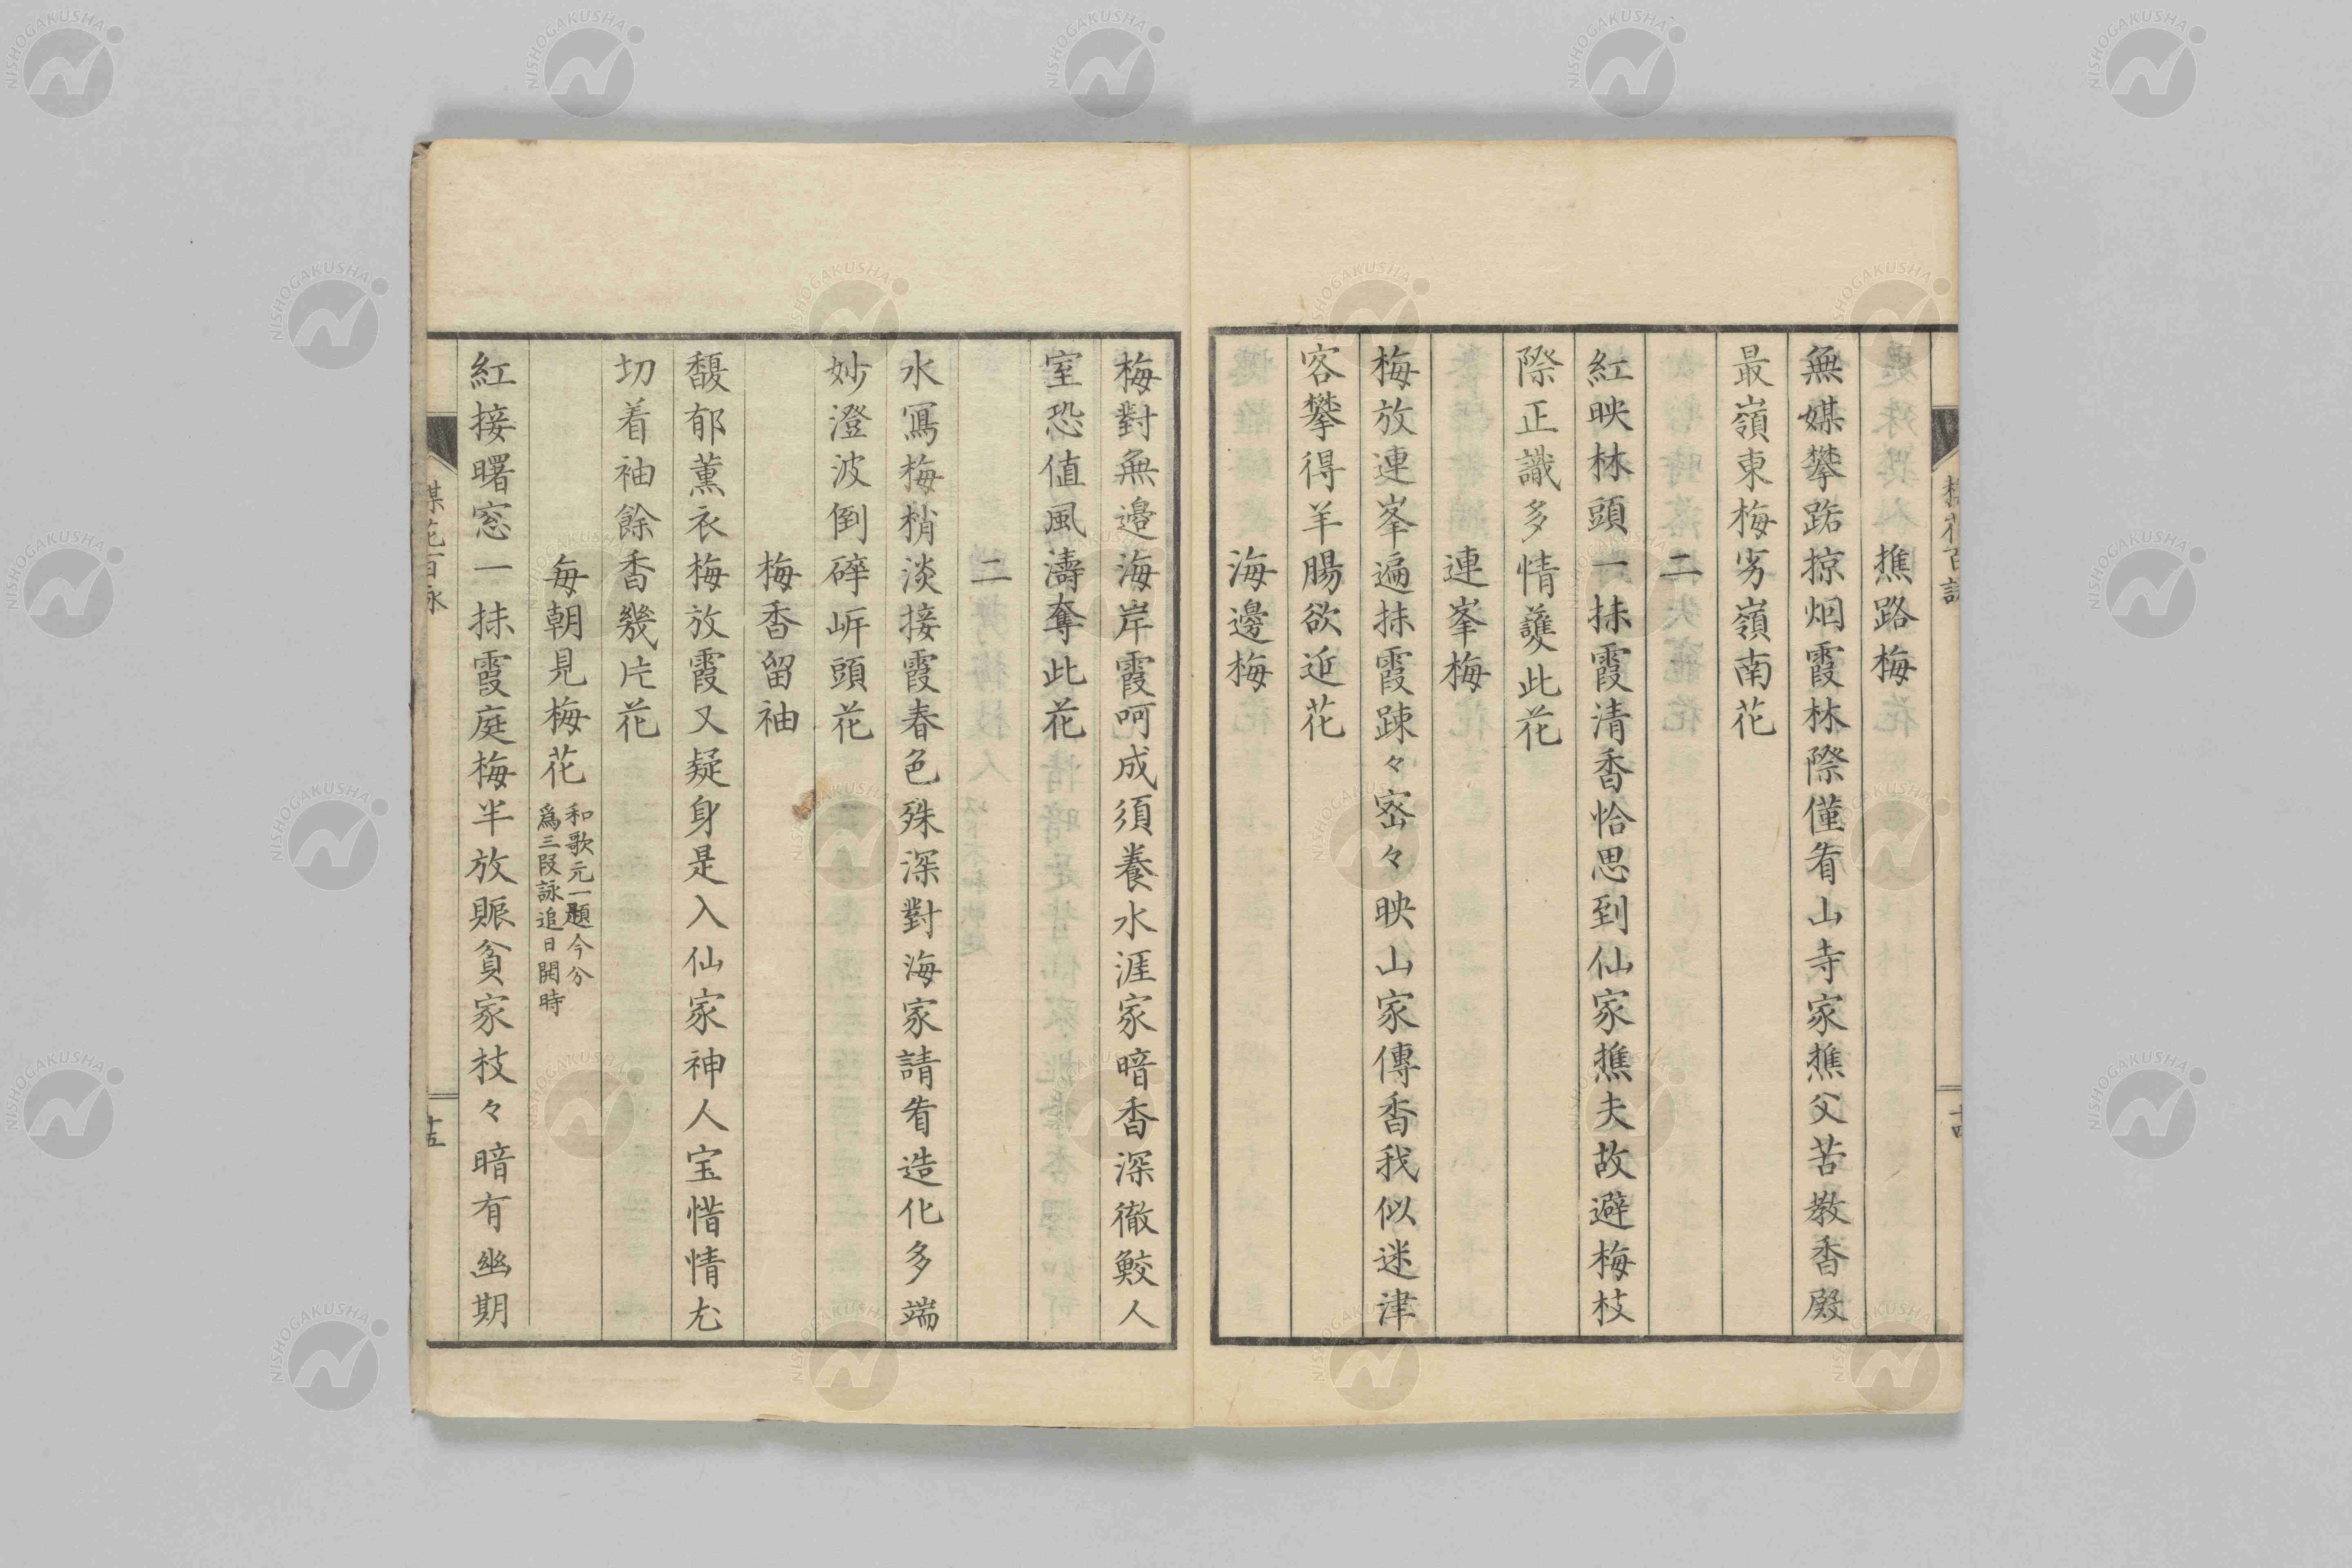 樵路梅
無媒攀踞掠烟霞林際僅看山寺家樵父苦教香殿
最嶺東梅劣嶺南花
二
紅映林頭一抹霞清香恰思到仙家樵夫故避梅枝
際正識多情護此花
連峯梅
梅放連峯遍抹霞踈々密々映山家傳香我似迷津
客攀得羊腸欲近花
海邊梅
梅對無邊海岸霞呵成須養水涯家暗香深徹鮫人
室恐値風濤奪此花
二
水寫梅梢淡接霞春色殊深對海家請看造化多端
妙澄波倒碎岸頭花
梅香留袖
馥郁薫衣梅放霞又疑身是入仙家神人宝惜情尤
切着袖餘香幾片花
毎朝見梅花 和歌元一題今分
爲三段詠追日開時
紅接曙窓一抹霞庭梅半放賑貧家枝々暗有幽期
十五
NISHOGAKUSHA